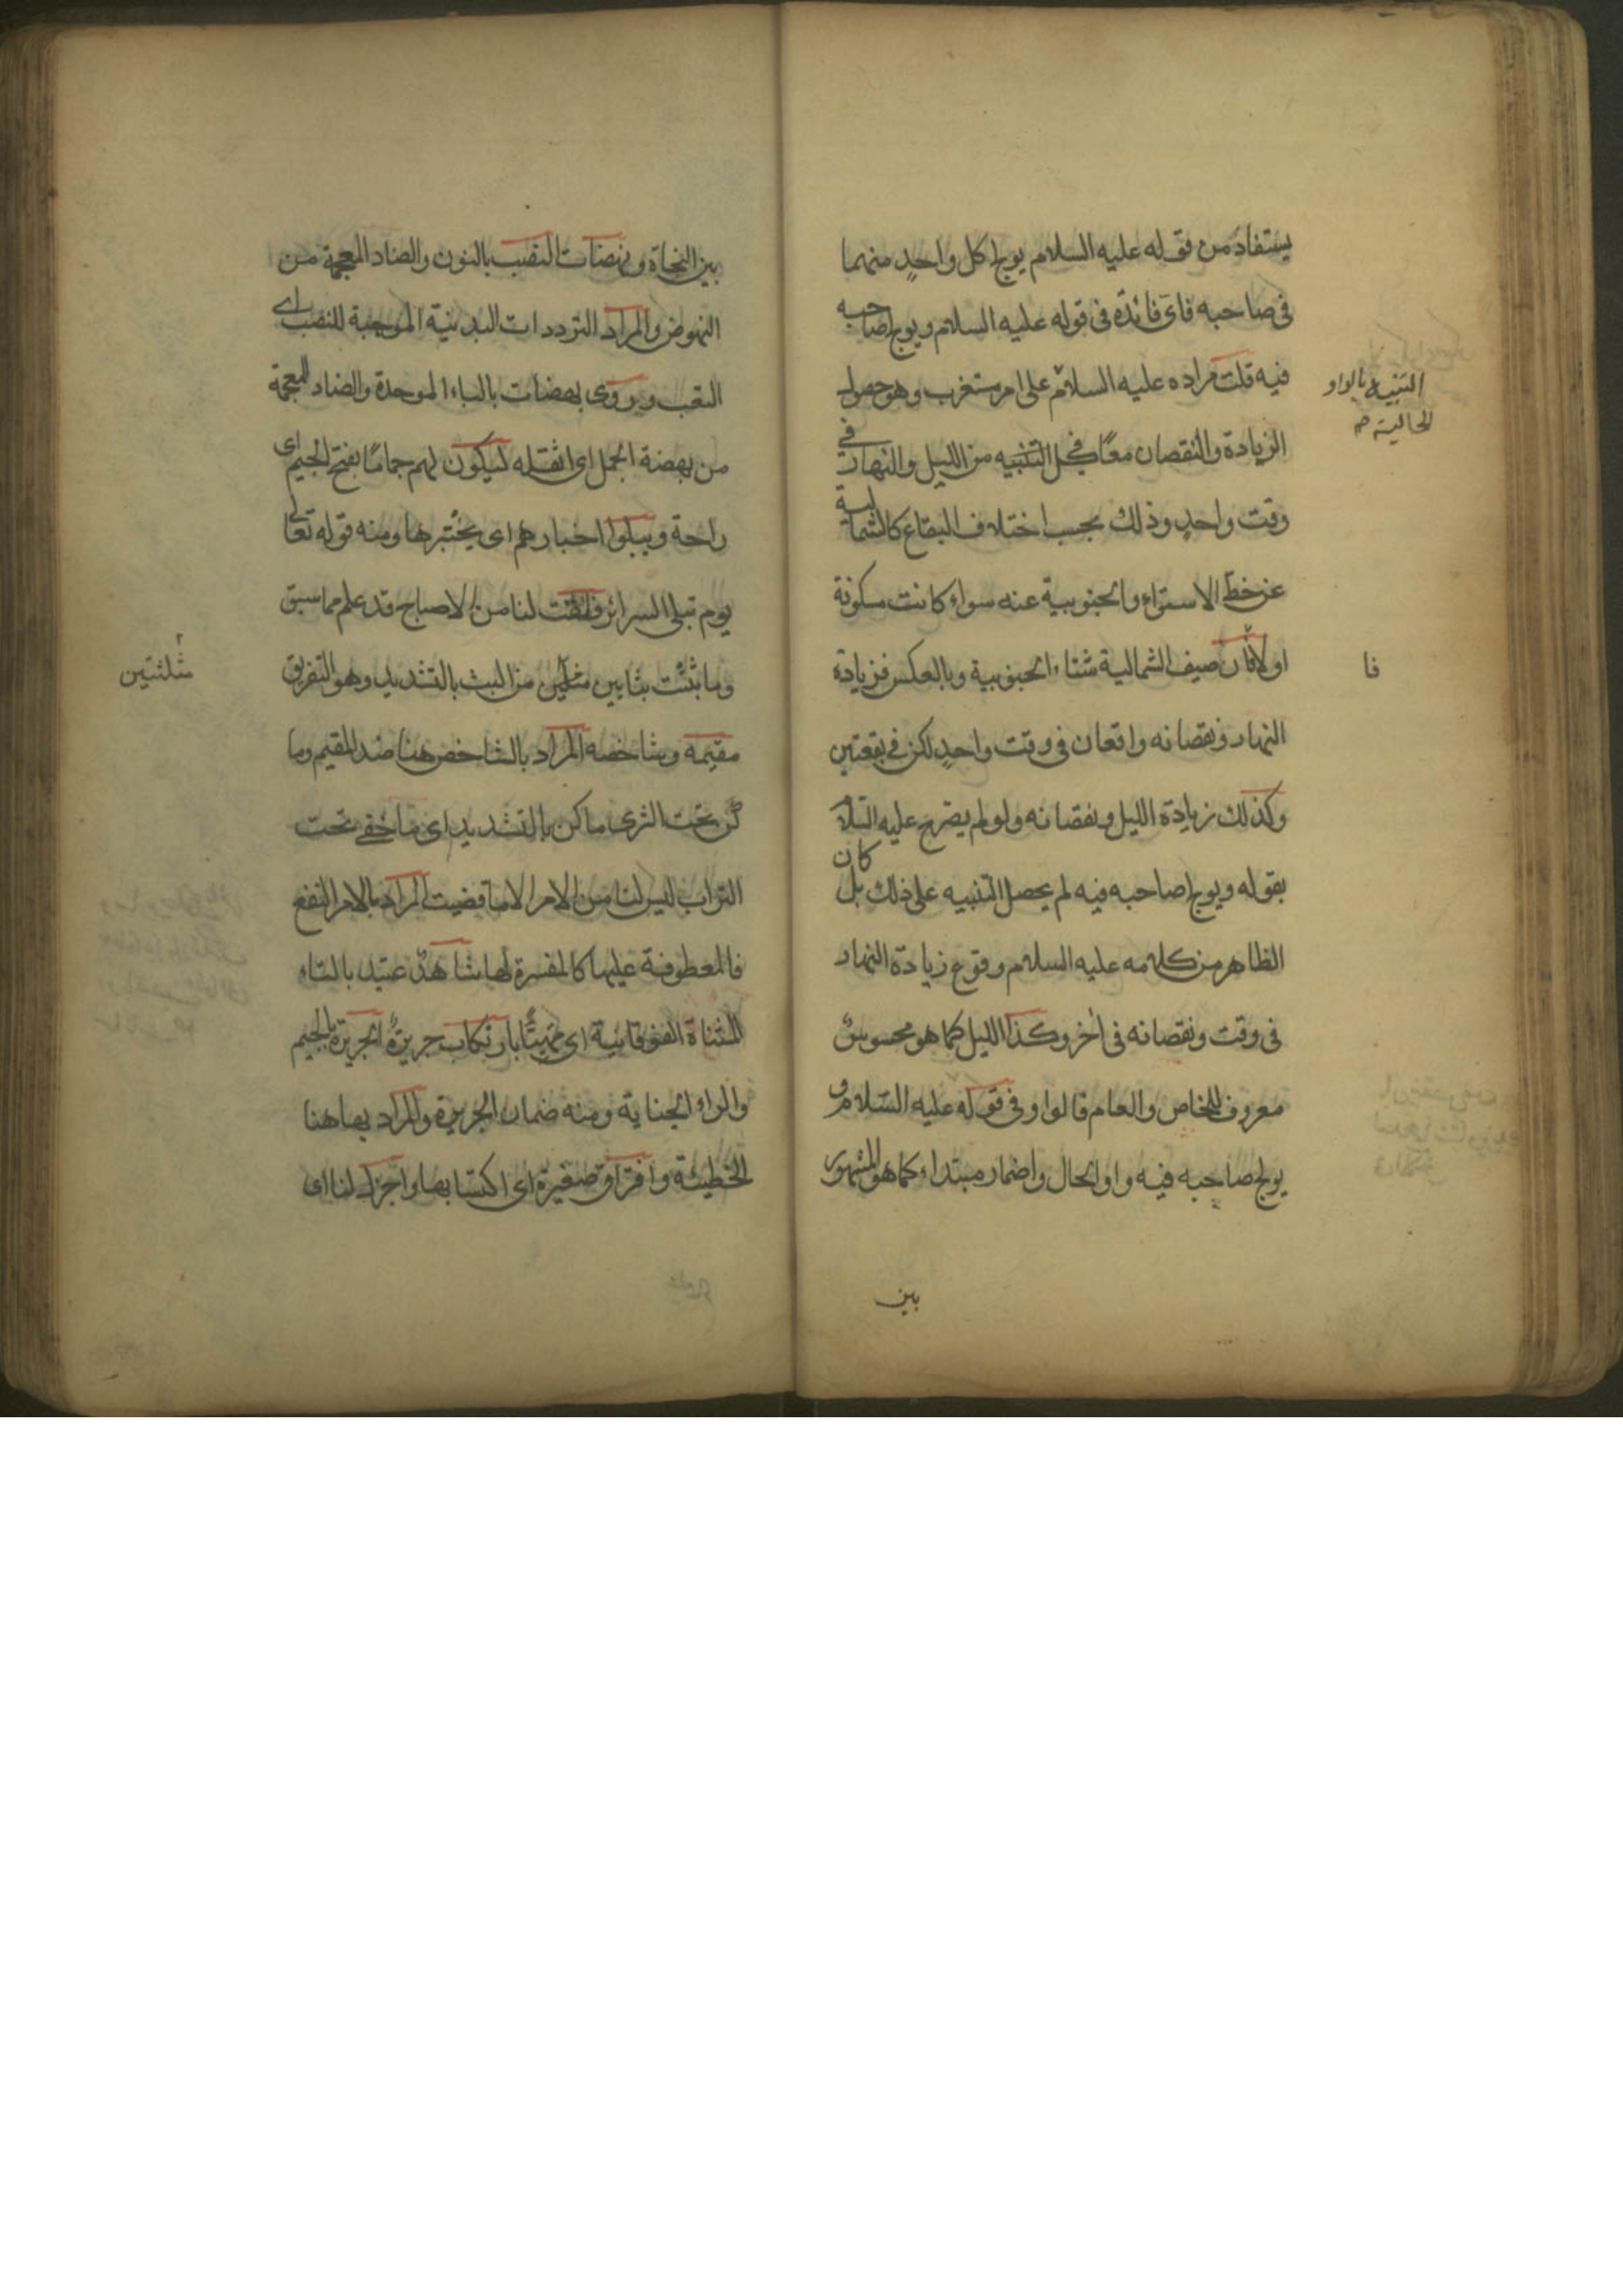 يستفاد من قوله عليه السلام يولج كل واحدٍ منهما
فى صاحبه فاى فائدة فى قوله عليه السلام ويولج صاحبه
فيه قلت مراده عليه السلام على امر مستغرب وهو حصول
التنبيه بالواو
الحالية صح
الزيادة والنقصان معًا فى كل التنبيه من الليل والنهار فى
وقت واحدٍ وذلك بحسب اختلاف البقاع كالشمالية
عن خط الاستواء والجنوبية عنه سواء كانت مسكونة
اولا فان صيف الشمالية شتاء الجنوبية وبالعكس فزيادة
فا
النهار ونقصانه واقعان فى وقت واحدٍ لكن فى بقعتين
وكذلك زيادة الليل ونقصانه ولو لم يصرح عليه السلام
بقوله ويولج صاحبه فيه لم يحصل التنبيه على ذلك بل كان
الظاهر من كلامه عليه السلام وقوع زيادة النهار
فى وقت ونقصانه فى اخر وكذا الليل كما هو محسوس
معروف للخاص والعام قالوا وفى قوله عليه السلام و
يولج صاحبه فيه واو الحال واضمار مبتداء كما هو المشهور
بين
بين النحاة ونهضات النصب بالنون والضاد المعجمة من
النهوض والمراد الترددات البدنية الموجبة للنصب اى
التعب ويروى بهضات بالباء الموحدة والضاد المعجمة
من بهضة الحمل اى اثقله ليكون لهم جمامًا بفتح الجيم اى
راحة ويبلوا اخبارهم اى يختبرها ومنه قوله تعالى
يوم تبلى السرائر فلقت لنا من الاصباح قد علم مما سبق
وما بثثت بثايين مثلثين من البث بالتشديد وهو التفريق
مثلثتين
مقيمه وشاخصه المراد بالشاخص هنا ضد المقيم وما
كن تحت الثرى ماكن بالتشديد اى ما خفى تحت
التراب ليس لنا من الامر الا ما قضيت المراد بالامر النفع
فالمعطوفة عليها كالمفسرة لها شاهدٌ عتيد بالتاء
المثناة الفوقانية اى مهيئًا بارتكاب جريرة الجريرة بالجيم
والراء الجناية ومنه ضمان الجريرة والمراد بها هنا
الخطيئة واقتراف صغيرة اى اكتسابها واجزل لنا اى